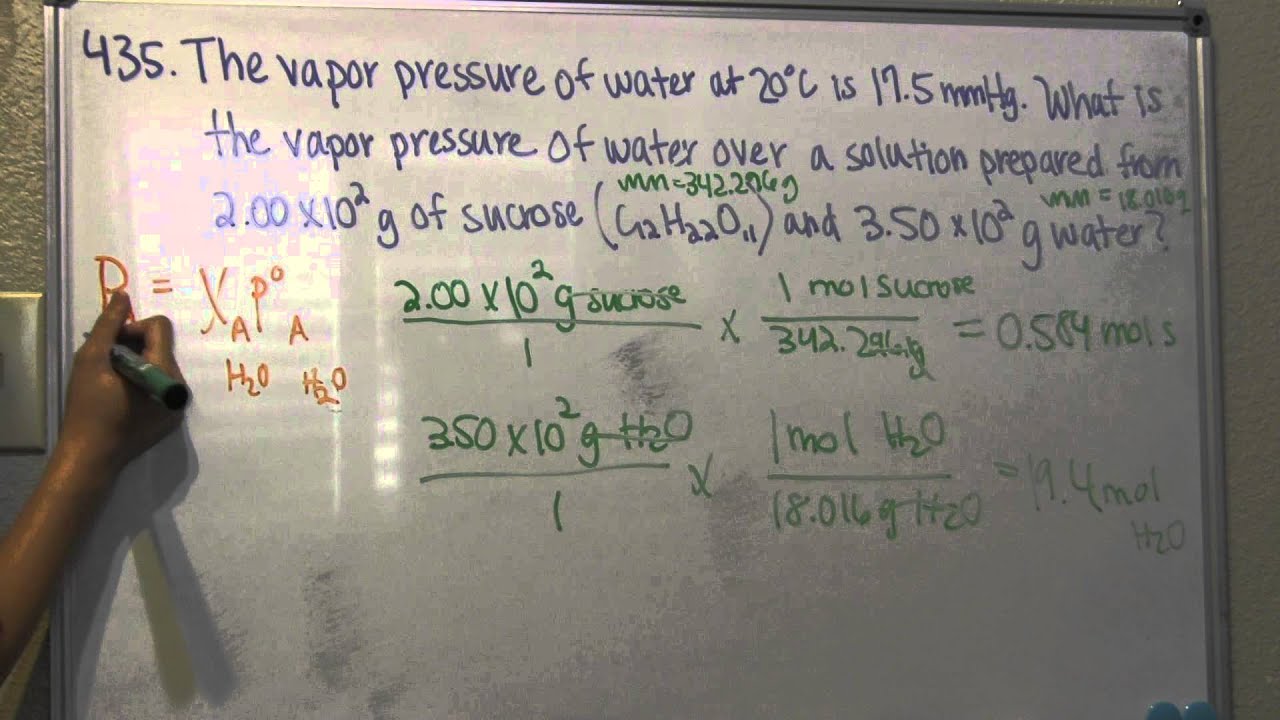 435. The vapor pressure of water at 20°C is 17.5 mmHg. What is
the vapor pressure of water over a solution prepared from
mm = 342.296g
mm = 18.016g
2.00 x 10² g of sucrose (C12H22O11) and 3.50 x 10² g water?
P_A = X_A P°_A
H2O H2O
2.00 x 10² g sucrose / 1 x 1 mol sucrose / 342.296g = 0.584 mol s
3.50 x 10² g H2O / 1 x 1 mol H2O / 18.016 g H2O = 19.4 mol
H2O